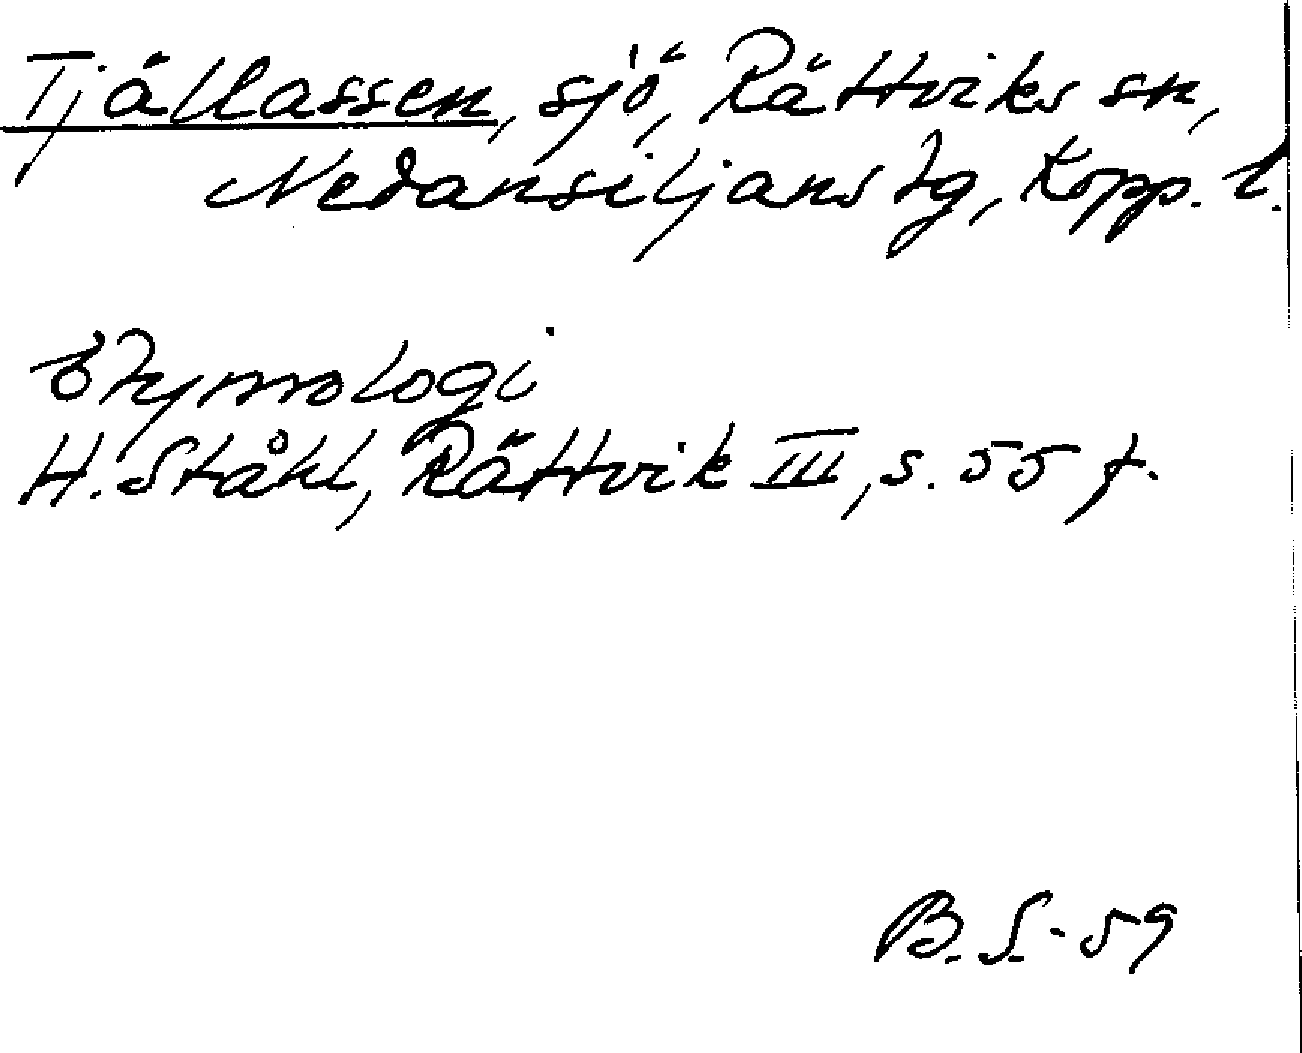 Tjällassen, sjö, Rättviks sn,
Nedansiljans tg, Kopp. l.
Etymologi
H. Ståhl, Rättvik III, s. 55 f.
B. S. 59